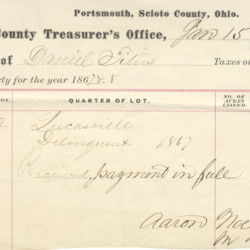 Portsmouth, Scioto County, Ohio.
County Treasurer's Office, Jan 15
of Daniel Titus Taxes o
rty for the year 1867 & 8
QUARTER OF LOT. NO. OF ACRES LISTED
Lucasville
Delinquent 1867
Received payment in full
Aaron Noe